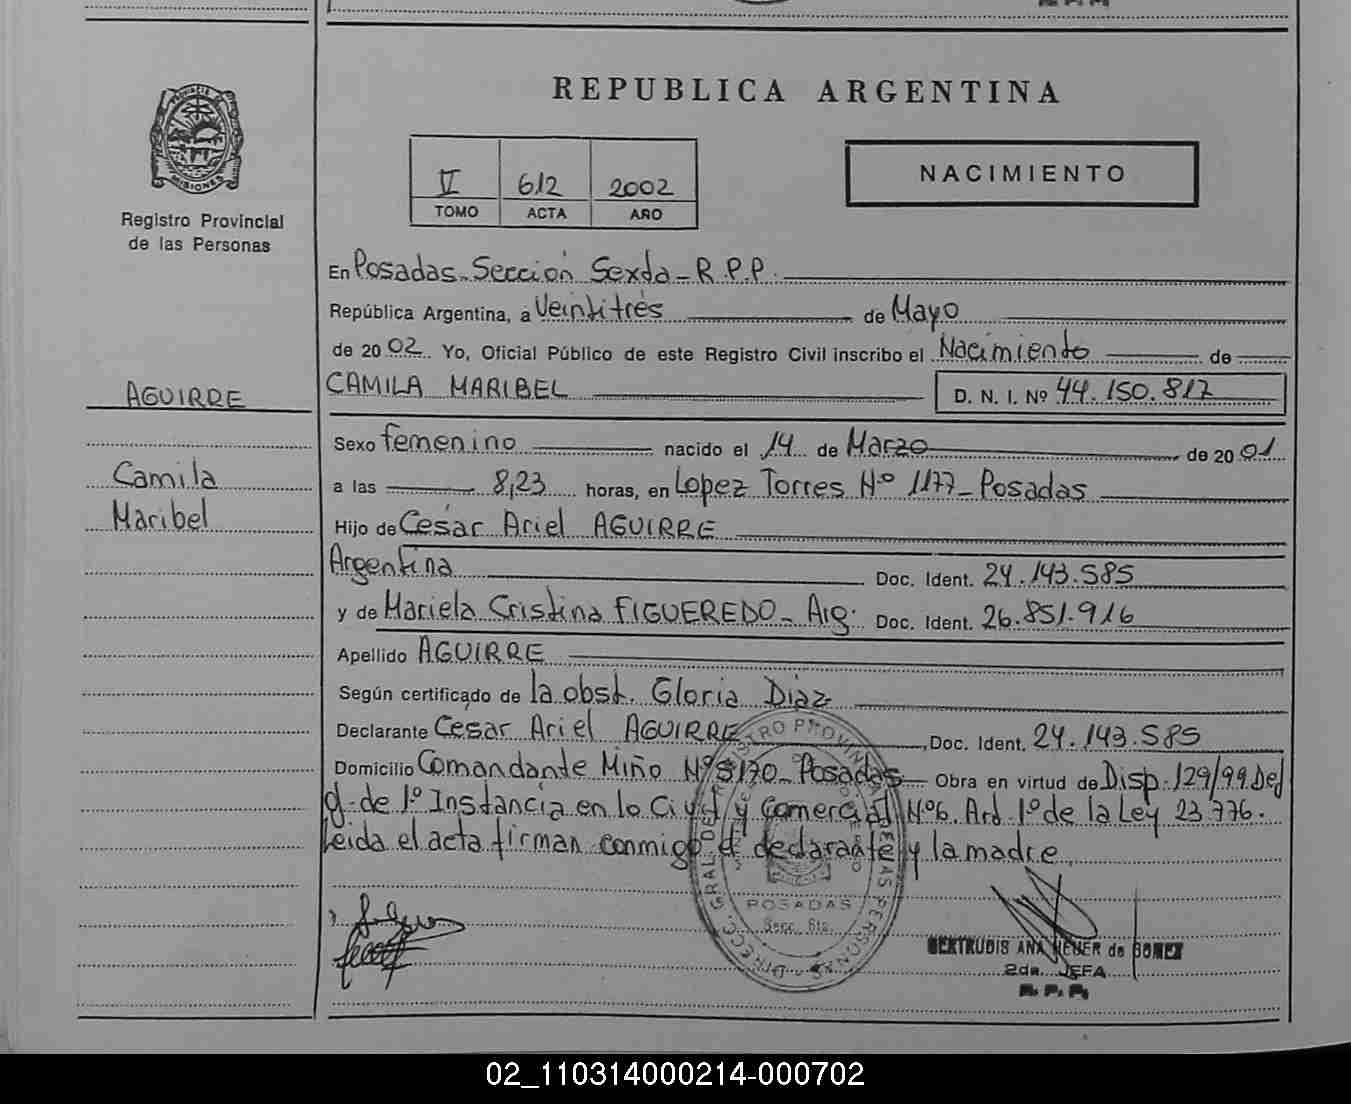 REPUBLICA ARGENTINA
PROVINCIA DE
MISIONES
Registro Provincial
de las Personas
V 612 2002
TOMO ACTA AÑO
NACIMIENTO
En Posadas-Sección Sexta-R.P.P.
República Argentina, a Veintitrés de Mayo
de 2002 Yo, Oficial Público de este Registro Civil inscribo el Nacimiento de
AGUIRRE
CAMILA MARIBEL D. N. I. Nº 44.150.817
Sexo femenino nacido el 14 de Marzo de 2001
Camila
Maribel
a las 8,23 horas, en Lopez Torres Nº 1177-Posadas
Hijo de César Ariel AGUIRRE
Argentina Doc. Ident. 24.143.585
y de Mariela Cristina FIGUEREDO-Arg. Doc. Ident. 26.851.916
Apellido AGUIRRE
Según certificado de la obst. Gloria Diaz
Declarante Cesar Ariel AGUIRRE, Doc. Ident. 24.143.585
Domicilio Comandante Miño Nº 5170-Posadas Obra en virtud de Disp. 129/99 Def
g. de 1º Instancia en lo Civil y Comercial Nº6. Art 1º de la Ley 23.776.
Leida el acta firman conmigo el declarante y la madre
DIRECC. GRAL. DEL REGISTRO PROVINCIAL DE LAS PERSONAS
POSADAS
Secc. 6ta.
GERTRUDIS ANA de GOMEZ
2da. JEFA
R. P. P.
02_110314000214-000702